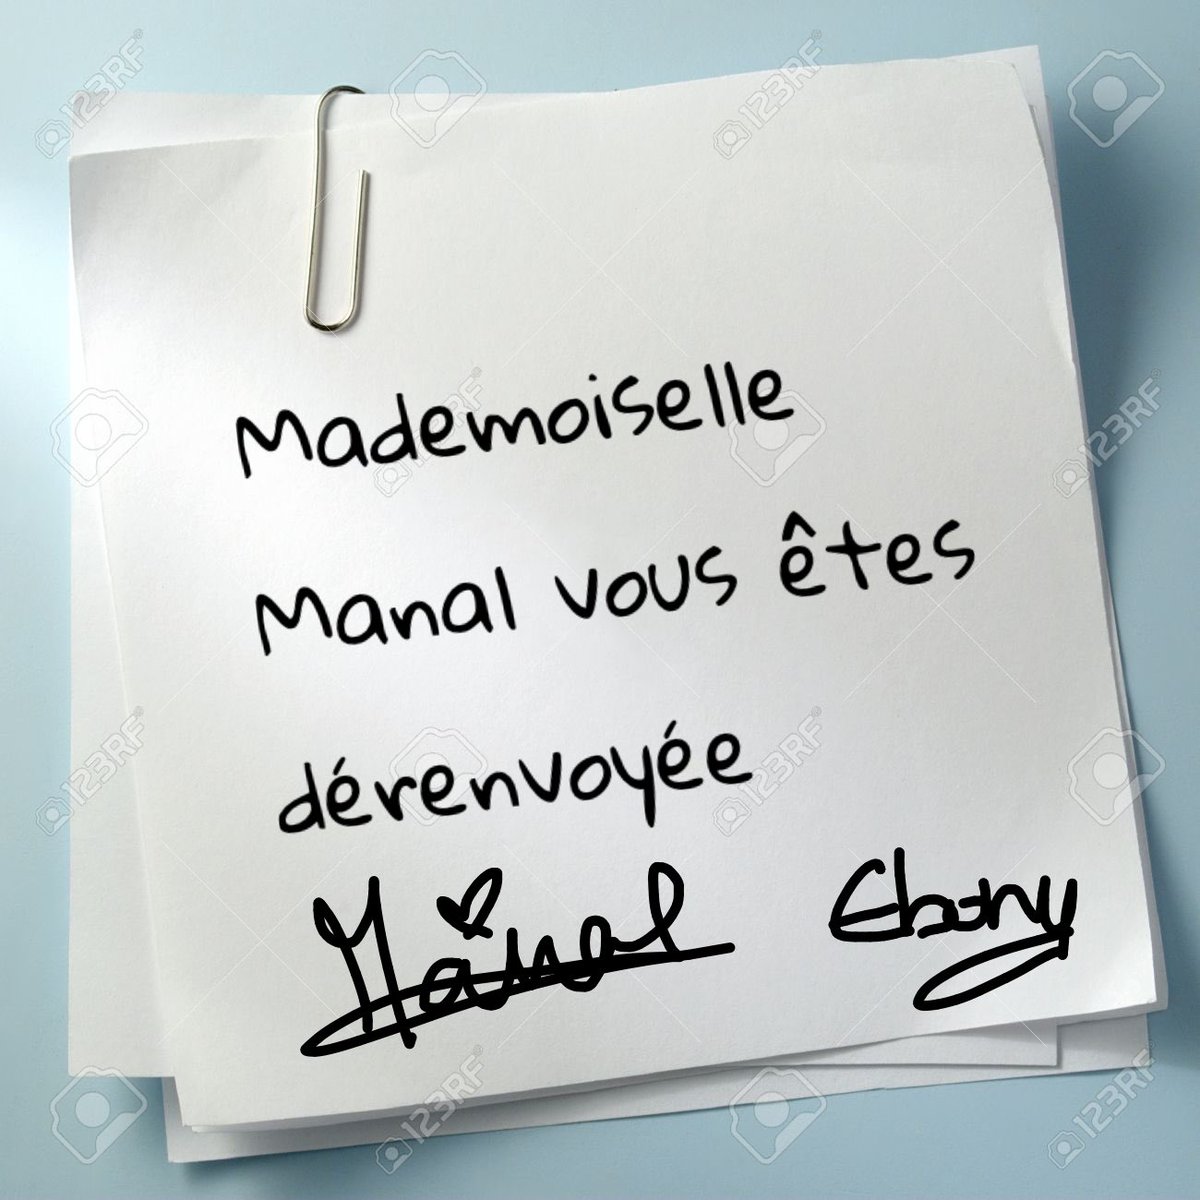 Mademoiselle
Manal vous êtes
dérenvoyée
Manal Ebony